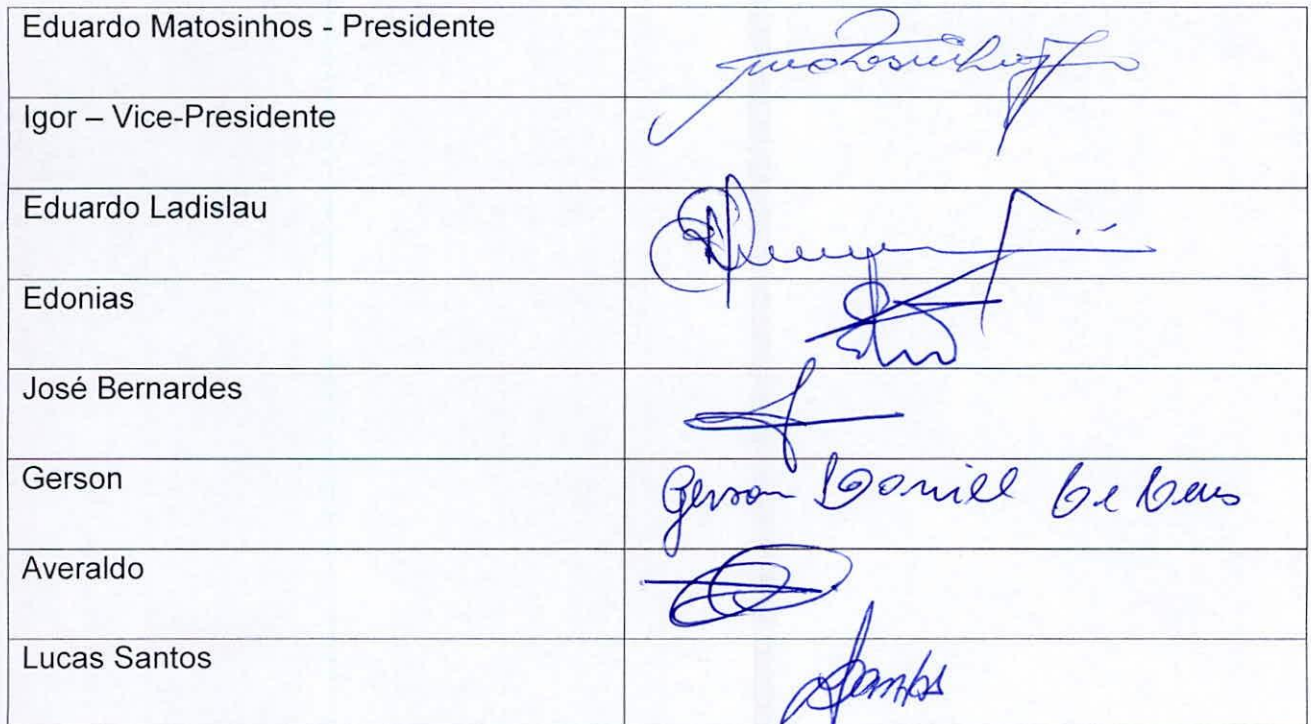 Eduardo Matosinhos - Presidente
Igor – Vice-Presidente
Eduardo Ladislau
Edonias
José Bernardes
Gerson
Gerson Daniell de Deus
Averaldo
Lucas Santos
Santos